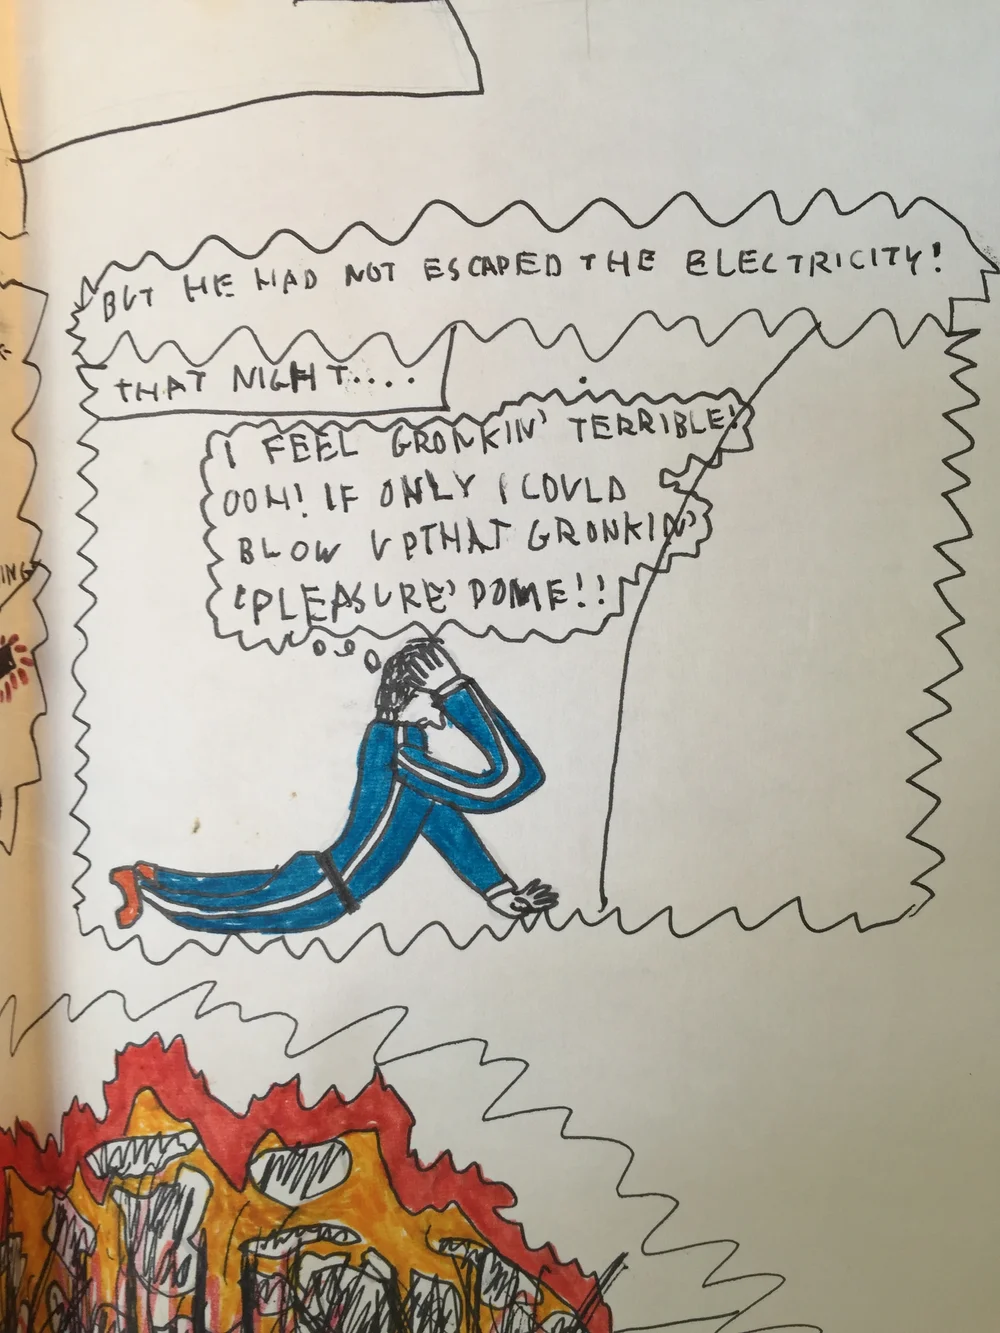 BUT HE HAD NOT ESCAPED THE ELECTRICITY!
THAT NIGHT....
I FEEL GRONKIN' TERRIBLE!
OOH! IF ONLY I COULD
BLOW UP THAT GRONKIN'
'PLEASURE' DOME!!
ING